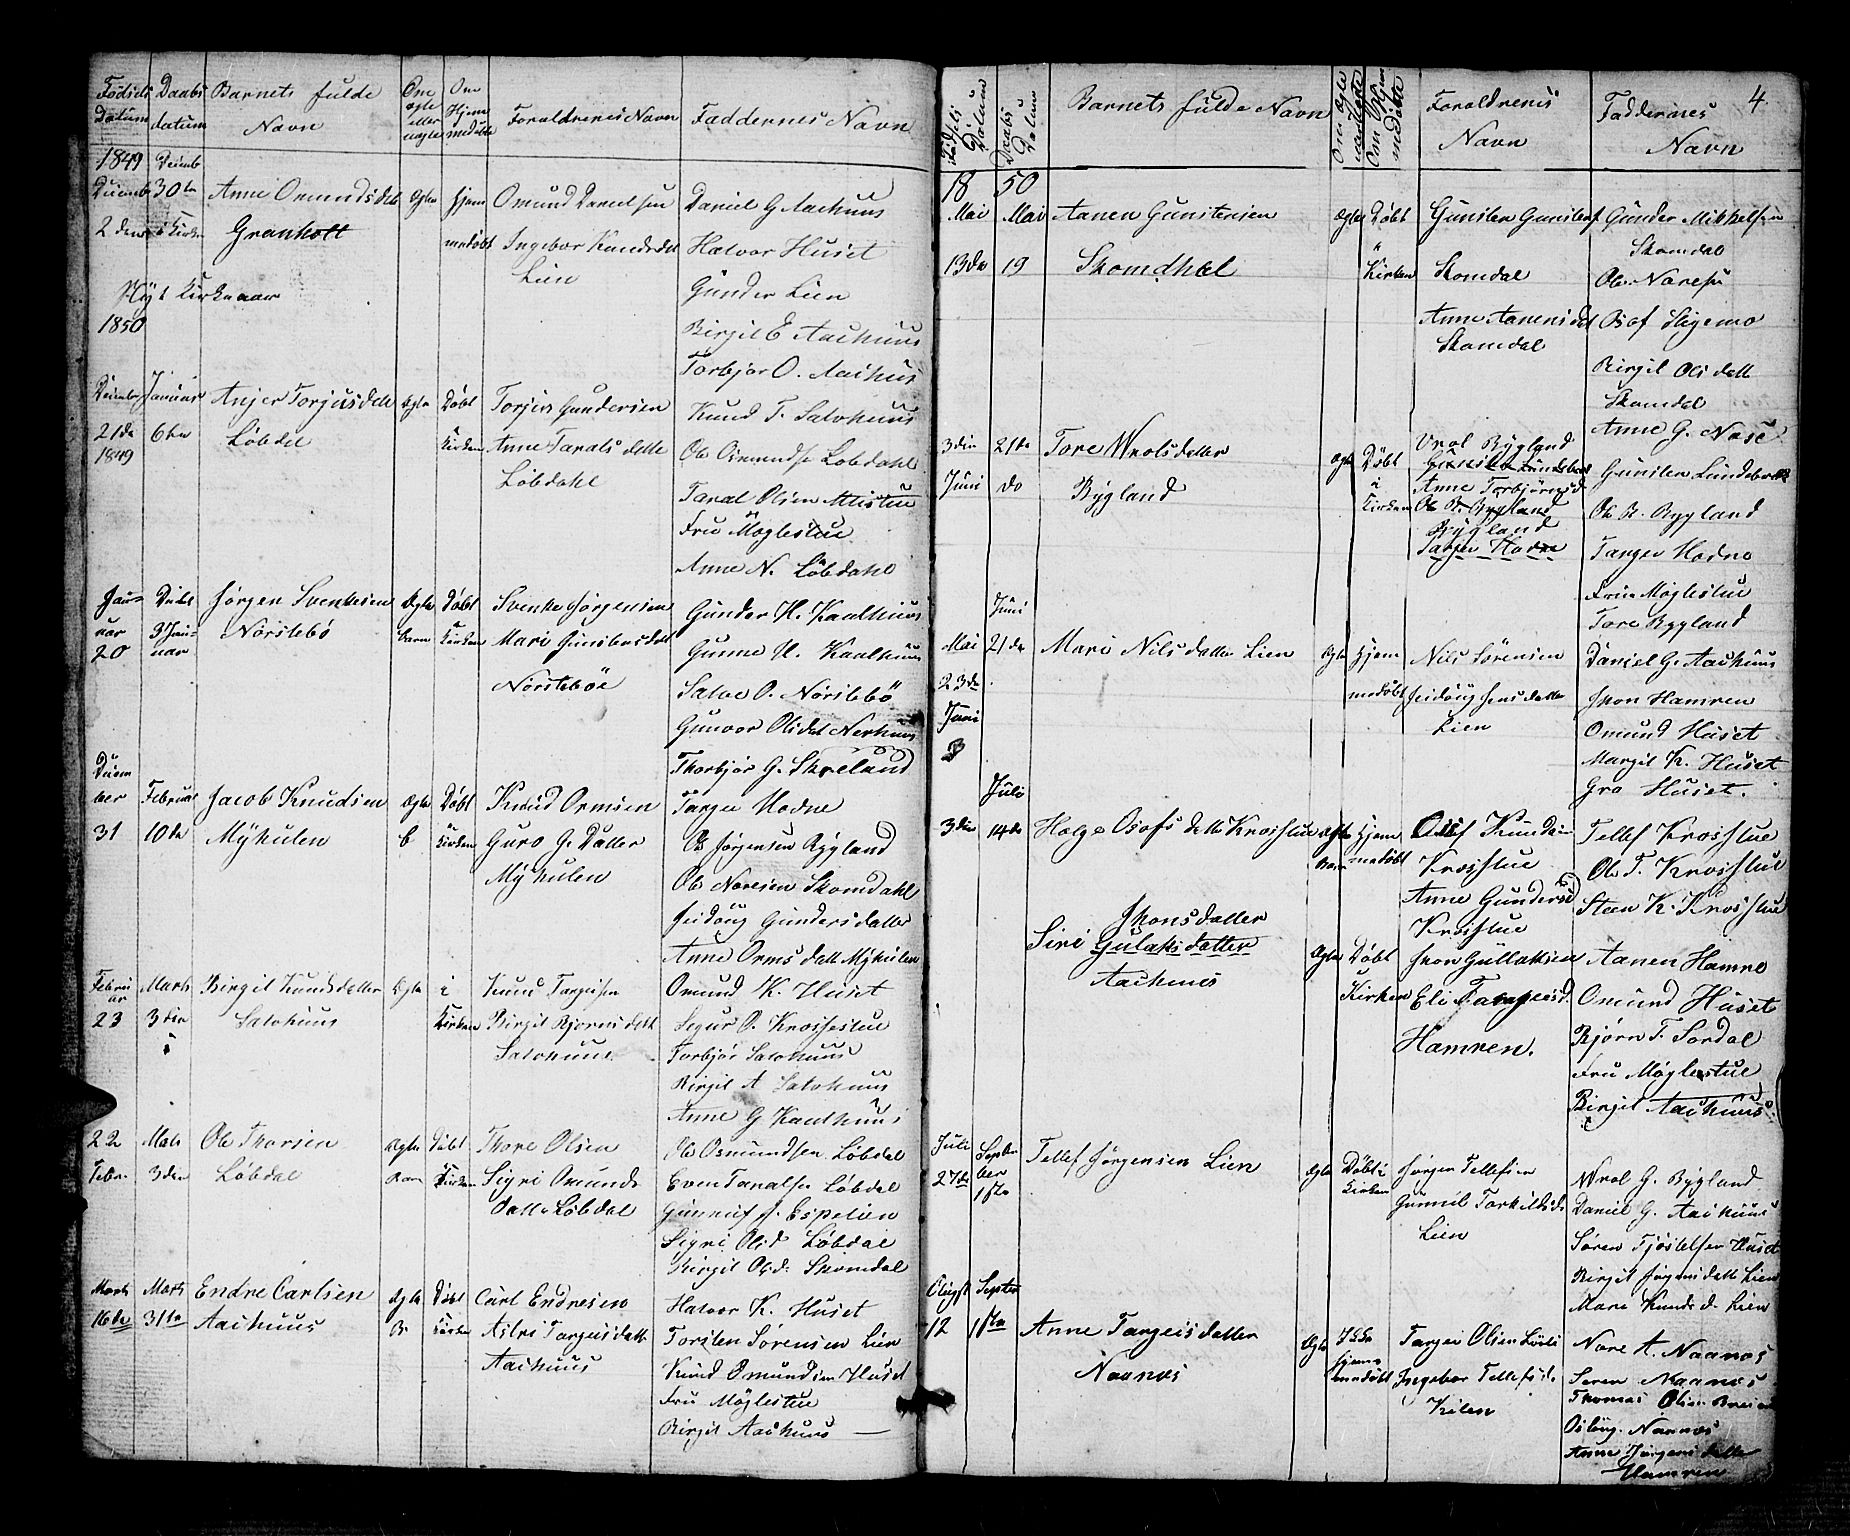 Fødsels Datum
Daabs datum
Barnets fulde Navn
Om ægte eller uægte
Om Hjemmedøbt
Foraldrenes Navn
Faddernes Navn
1849
Decemb 2den
Decemb 30te i Kirken
Anne Omundsdatt
Granholt
Ægte
Hjemmedøbt
Omund Danielsen
Ingebor Knudsdat
Lien
Daniel G Aachuus
Halvor Huset
Gunder Lien
Birgit E Aachuus
Torbjør O. Aachus
Nyt Kirkeaar
1850
Decembr 21de 1849
Januar 6te
Anjer Torjusdatt
Løbdal
Ægte
Døbt i Kirken
Torjus Gundersen
Anne Taralsdatt
Løbdahl
Knud T. Salvhuus
Ole Osmundsen Løbdahl
Taral Olsen
Fru Møglestue
Anne N. Løbdahl
Januar 20
Januar
Jørgen Svenkesen
Nørstebø
Ægte Barn
Døbt i Kirken
Svenke Jørgensen
Mari Gunstensdatt
Nørstebøe
Gunder H. Kaalhuus
Gunne H. Kaalhuus
Salve O. Nørstebø
Gunvor Olsdat Nerhuus
Thorbjør G. Skreland
December 31
Februar 10de
Jacob Knudsen
Myhulen
Ægte B
Døbt i Kirken
Knud Ormsen
Guro G. Datter
Myhulen
Targei Hodne
Ole Jørgensen Bygland
Ole Noresen Skomdahl
Gundersdatter
Anne Ormsdatt Myhulen
Februar 23
Marts 3die
Birgit Knudsdatter
Salvhuus
Ægte
i Kirken
Knud Targeisen
Birgit Bjørnsdatt
Salvhuus
Omund K. Huset
Sigur O. Krossestue
Torbjør Salvhuus
Birgit A Salvhuus
Anne G Kaalhuus
22 Febr.
Marts 3die
Ole Thorsen
Løbdal
Ægte Barn
Døbt i Kirken
Thore Olsen
Sigri Omundsdatt Løbdal
Ole Osmundsen Løbdal
Even Taralsen Løbdal
Gunnuf J. Espelien
Sigri Olsd Løbdal
Birgit Olsd: Skomdal
Marts 16de
Marts 31te
Endre Carlsen
Aachuus
Ægte B
Døbt i Kirken
Carl Endresen
Astri Targeisdatt
Aachuus
Halvor K. Huset
Torsten Sørensen Lien
Knud Omundsen Huset
Fru Møglestue
Birgit Aachuus
4.
Fødsels Datum
Daabs Datum
Barnets fulde Navn
Om ægte uægte
Om Hjemmedøbt
Foraldrenes Navn
Faddernes Navn
1850
Mai 13de
Mai 19
Aanen Gunstensen
Skomdhal
Ægte
Døbt i Kirken
Gunsten Gunstens
Skomdal
Anne Aanensdat
Skomdal
Gunder Mikkelsen
Skomdal
Ole Noresen
Osof Stigemo
Birgit Olsdatt
Skomdal
Anne G. Nase
3die Juni
21de do
Tore Wrolsdatter
Bygland
Ægte
Døbt i Kirken
Vrol Bygland
Anne Torbjørnsd
Ole B. Bygland
Bygland
Targei Hodne
Gunsten Lundebrek
Ole B. Bygland
Targei Hodne
Frue Møglestue
Tore Bygland
Mai 23de Juni
Juni 21de
Mari Nilsdatter Lien
Ægte
Hjemmedøbt
Nils Sørensen
Jensdatter
Lien
Daniel G. Aachuus
Jhon Hamren
Omund Huset
Margit K. Huset
Gro Huset.
3die
Juli 14de
Helge Osofsdatter Krosstue
Ægte Barn
Hjemmedøbt
Osof Knudsen
Krosstue
Anne Gundersd
Krosstue
Tellef Krosstue
Ole T. Krosstue
Steen K. Krosstue
Jhonsdatter
Siri Gulaksdatter
Aachuus
Ægte
Døbt i Kirken
Jhon Gullaksen
Eli Targeisd.
Hamren.
Aanen Hamre
Omund Huset
Bjørn T. Sordal
Fru Møglestue
Birgit Aachuus
Juli 27de
September 1ste
Tellef Jørgensen Lien
Ægte
Døbt i Kirken
Jørgen Tellefsen
Gunnil Torkildsd.
Lien
Wrol G. Bygland
Daniel G. Aachuus
Søren Tjøstelsen Huset
Birgit Jørgensdatt Lien
Mari Knudsd. Lien
August 12
Septer 1ste
Anne Targeisdatter
Naanes
Ægte
Hjemmedøbt
Targei Olsen
Ingebor Tellefsd.
Kilen
Nore A. Naanes
Søren Naanes
Thomas Olsen
Naanes
Anne Jørgensdatte
Hamren